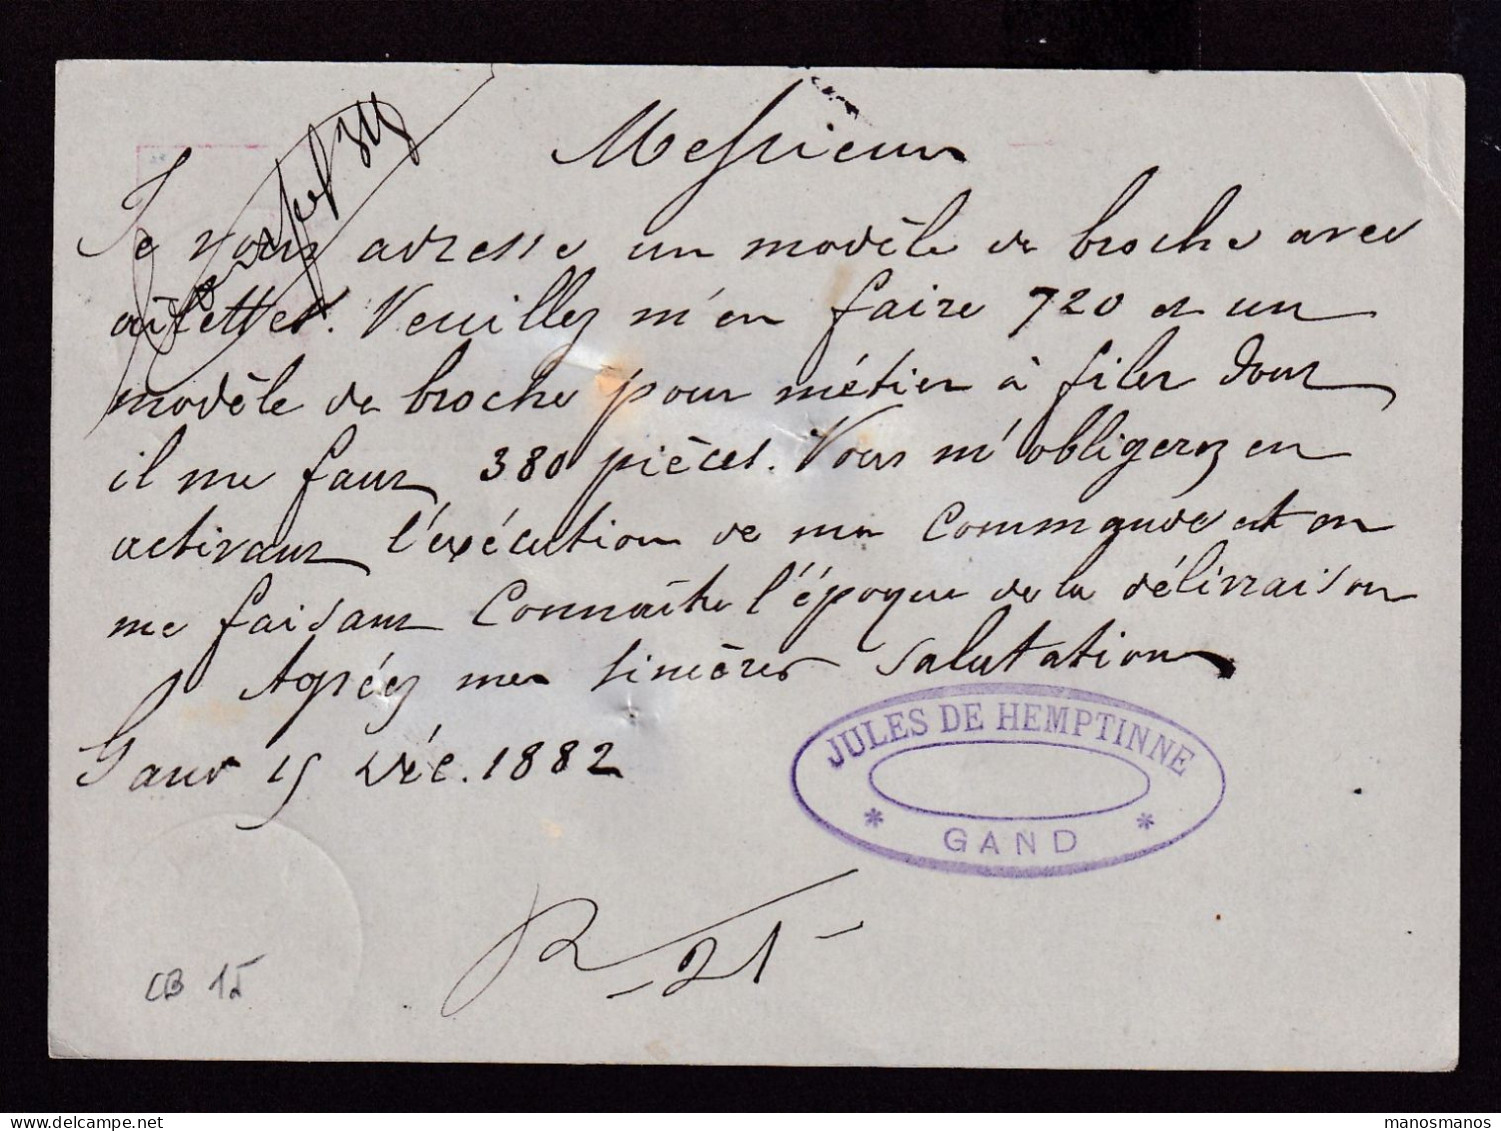 Messieurs
Je vous adresse un modèle de broche avec
ailettes. Veuillez m'en faire 720 et un
modèle de broche pour métier à filer dont
il me faut 380 pièces. Vous m'obligerez en
activant l'exécution de ma commande et en
me faisant connaître l'époque de la délivraison
Agréez mes sincères salutations
Gand 15 Déc. 1882
JULES DE HEMPTINNE
* GAND *
R 21
CB 15
manosmanos